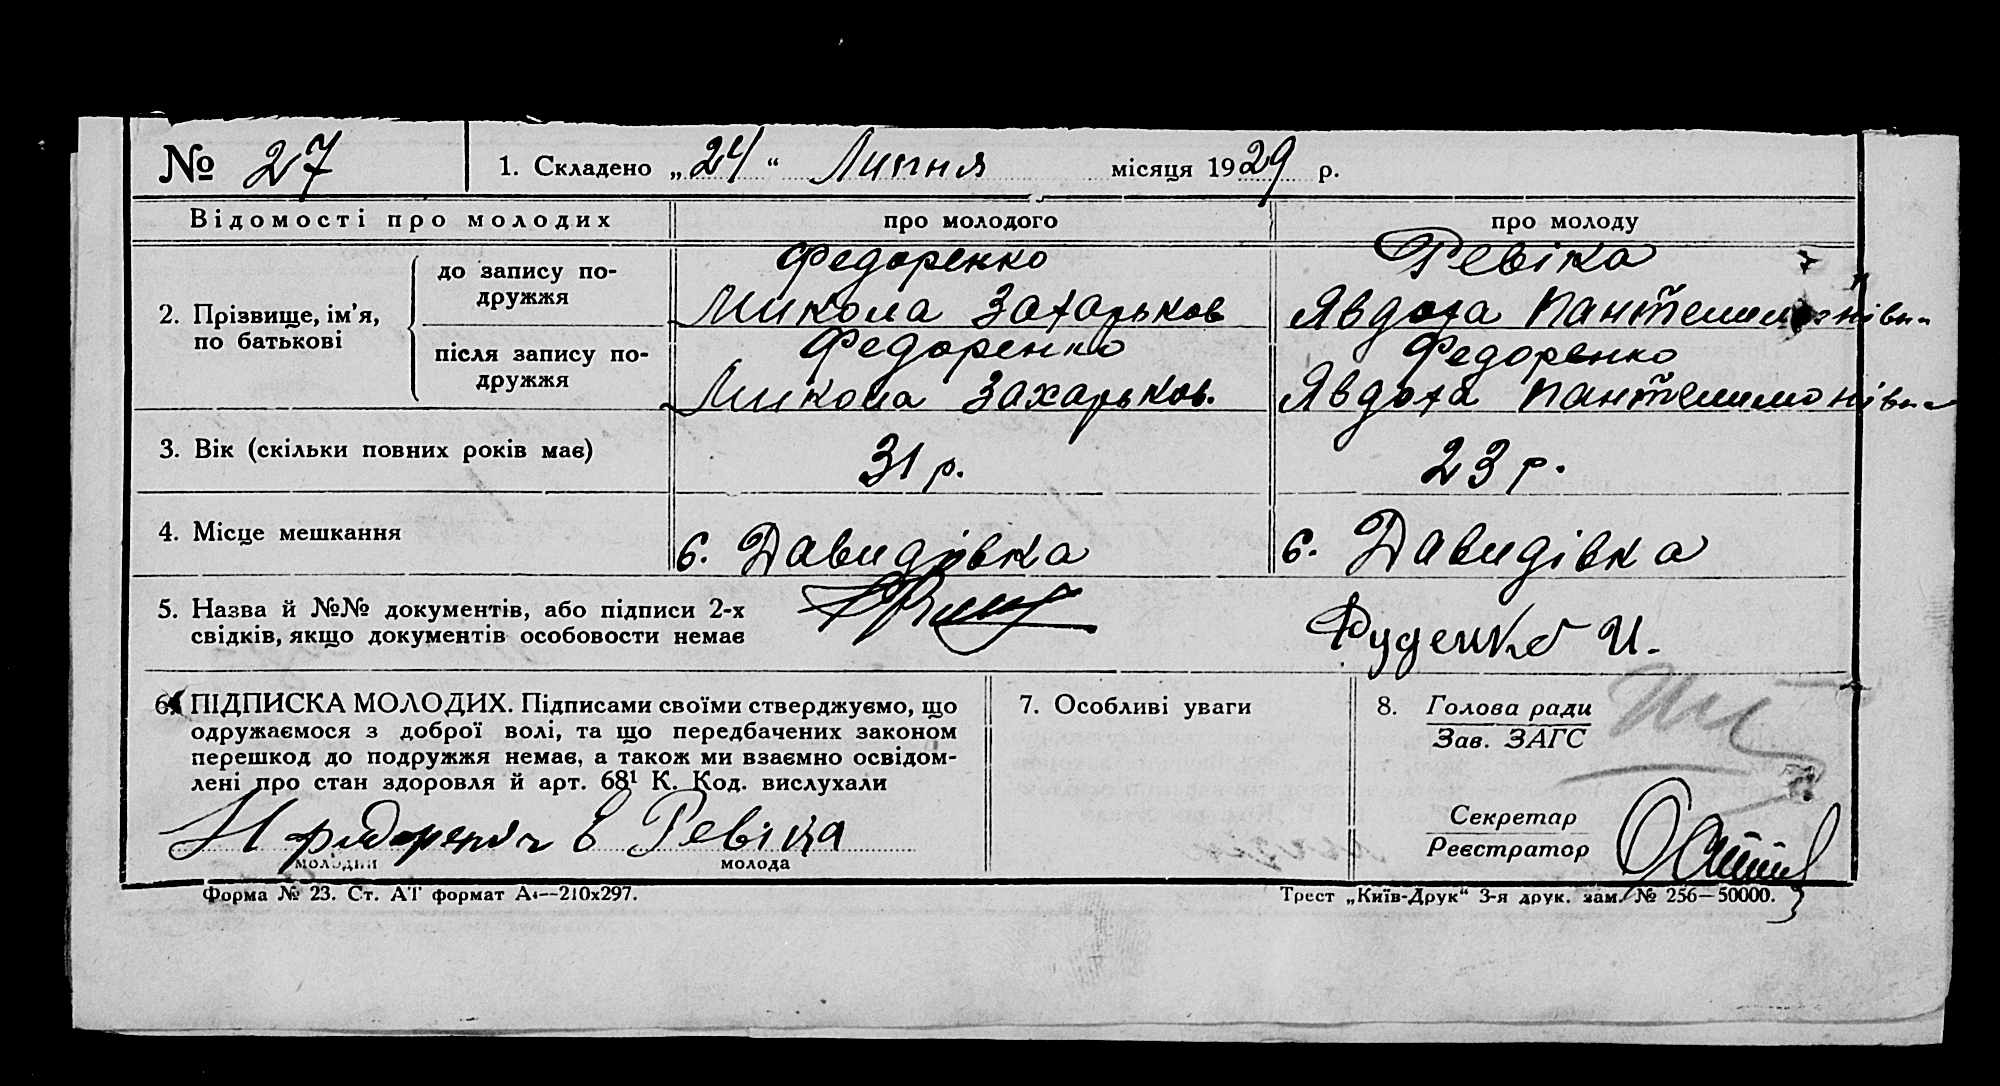 № 27
1. Складено „24“ Липня місяця 1929 р.
Відомості про молодих
про молодого
про молоду
2. Прізвище, ім’я, по батькові
до запису подружжя
Федоренко
Микола Захарьков
Ревіка
Явдоха Пантелимонівн
після запису подружжя
Федоренко
Микола Захарьков.
Федоренко
Явдоха Пантелимонівн
3. Вік (скільки повних років має)
31 р.
23 р.
4. Місце мешкання
с. Давидівка
с. Давидівка
5. Назва й №№ документів, або підписи 2-х
свідків, якщо документів особовости немає
Руденко И.
6. ПІДПИСКА МОЛОДИХ. Підписами своїми стверджуємо, що
одружаємося з доброї волі, та що передбачених законом
перешкод до подружжя немає, а також ми взаємно освідом-
лені про стан здоровля й арт. 68¹ К. Код. вислухали
Ревіка
молодий
молода
7. Особливі уваги
8. Голова ради
Зав. ЗАГС
Секретар
Реєстратор
Форма № 23. Ст. АТ формат А4—210x297.
Трест „Київ-Друк“ 3-я друк. зам. № 256—50000.